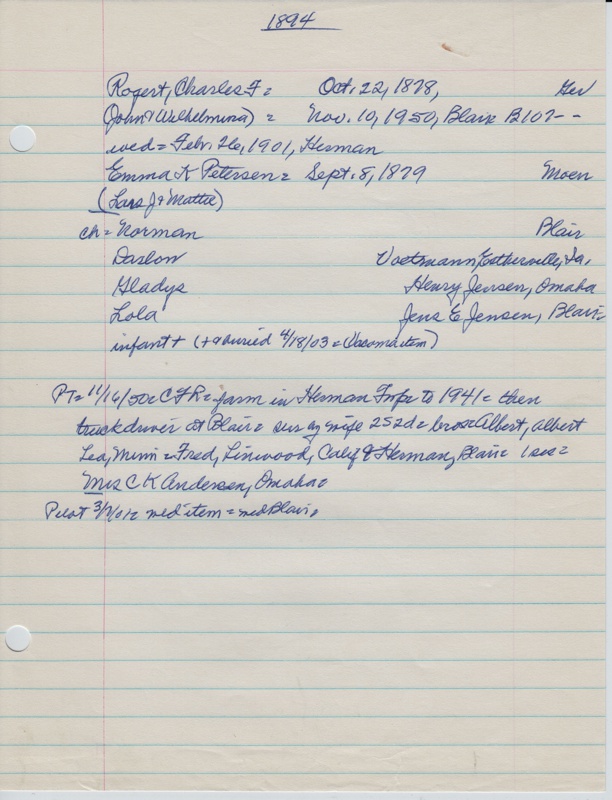 1894
Rogert, Charles F = Oct. 22, 1878, Ger
(John & Wilhelmina) = Nov. 10, 1950, Blair B107--
wed = Febr. 26, 1901, Herman
Emma K Petersen = Sept. 8, 1879 Moen
(Lars J & Mattie)
ch = Norman Blair
Daslow Voetmann, Estherville, Ia.
Gladys Henry Jensen, Omaha
Lola Jens E Jensen, Blair =
infant + (+ & buried 4/18/03 = (Vacoma item)
PT = 11/16/50 = CFR = farm in Herman Tmp = to 1941 = then
truckdriver at Blair = sur by wife 2s2d = bros = Albert, Albert
Lea, Minn = Fred, Linwood, Calif & Herman, Blair = 1 sis =
Mrs C K Andersen, Omaha =
Pilot 3/7/01 = wed item = wed Blair,